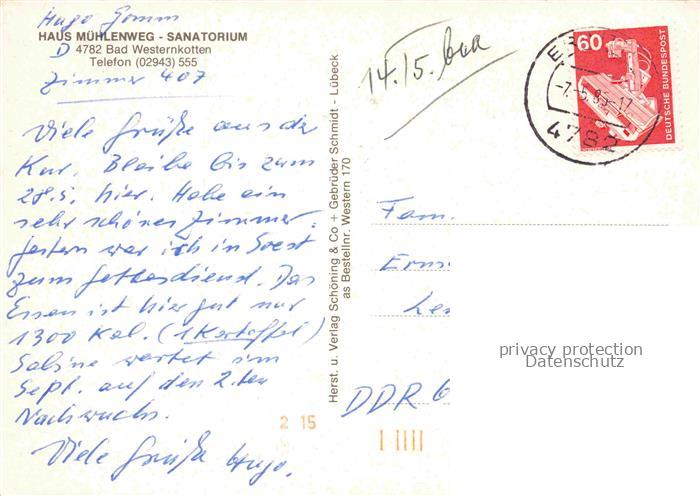 Hugo Gomm
HAUS MÜHLENWEG - SANATORIUM
D 4782 Bad Westernkotten
Telefon (02943) 555
Zimmer 407
Viele Grüße aus der
Kur. Bleibe bis zum
28.5. hier. Habe ein
sehr schönes Zimmer.
Gestern war ich in Soest
zum Gottesdienst. Das
Essen ist hier gut nur
1300 Kal. (1 Kartoffel)
Sabine wartet im
Sept. auf den 2.ten
Nachwuchs.
Viele Grüße Hugo.
2 15
Herst. u. Verlag Schöning & Co + Gebrüder Schmidt - Lübeck
as Bestellnr. Western 170
14./5.
60
DEUTSCHE BUNDESPOST
-7.-5.85-17
4782
Fam.
DDR
privacy protection
Datenschutz